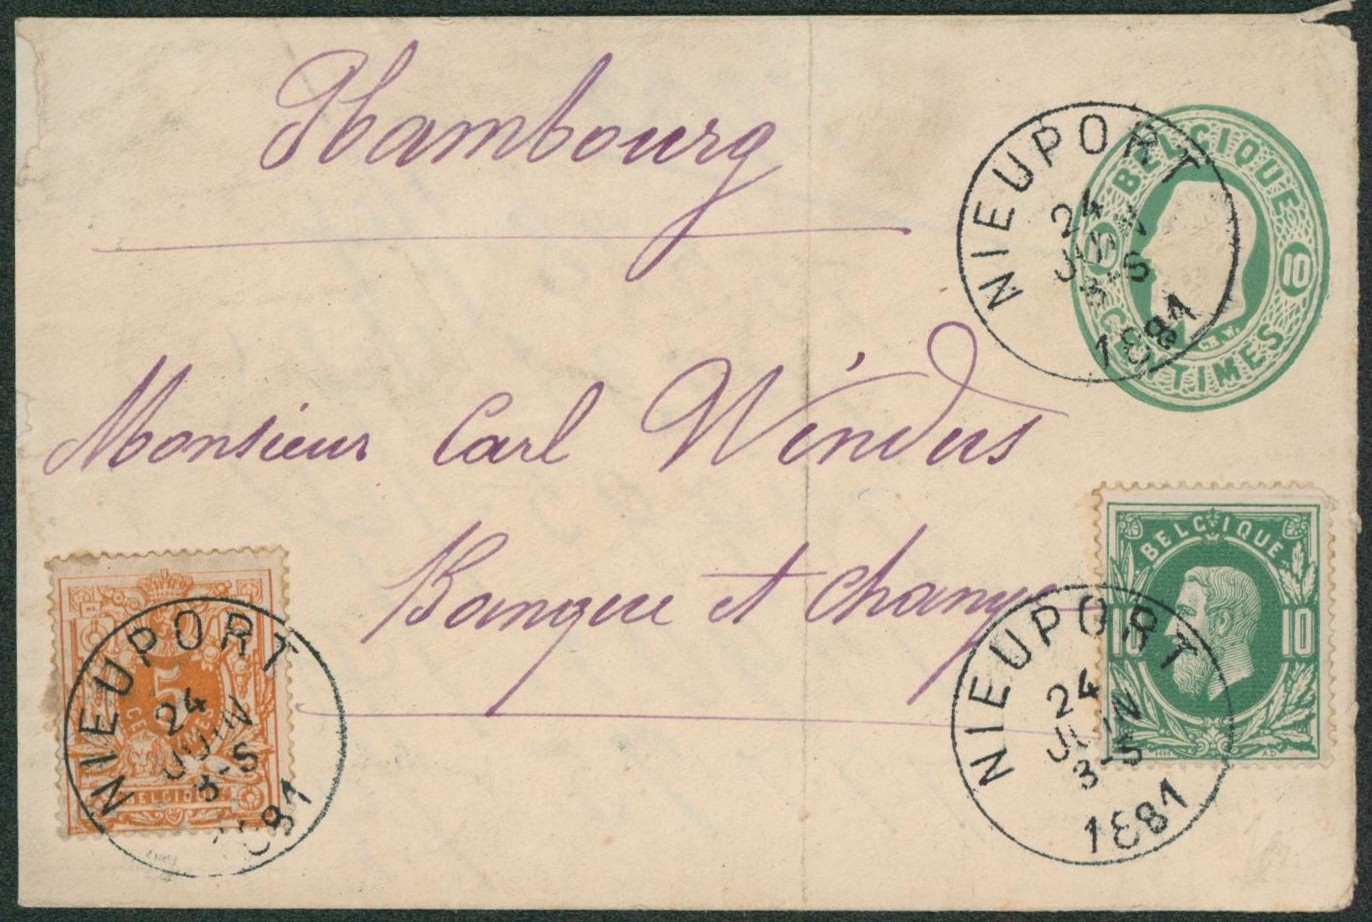 Hambourg
Monsieur Carl Windus
Banque et change
BELGIQUE
10
CENTIMES
NIEUPORT
24
JUIN
3-S
1881
BELGIQUE
10 10
NIEUPORT
24
JUIN
3-S
1881
5
CENTIMES
BELGIQUE
NIEUPORT
24
JUIN
3-S
1881